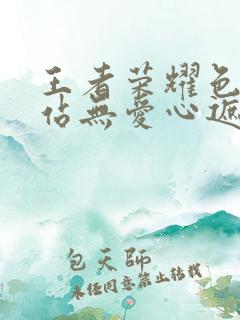 王者荣耀色
佔無愛心遮
包天師
未任同意禁止转载